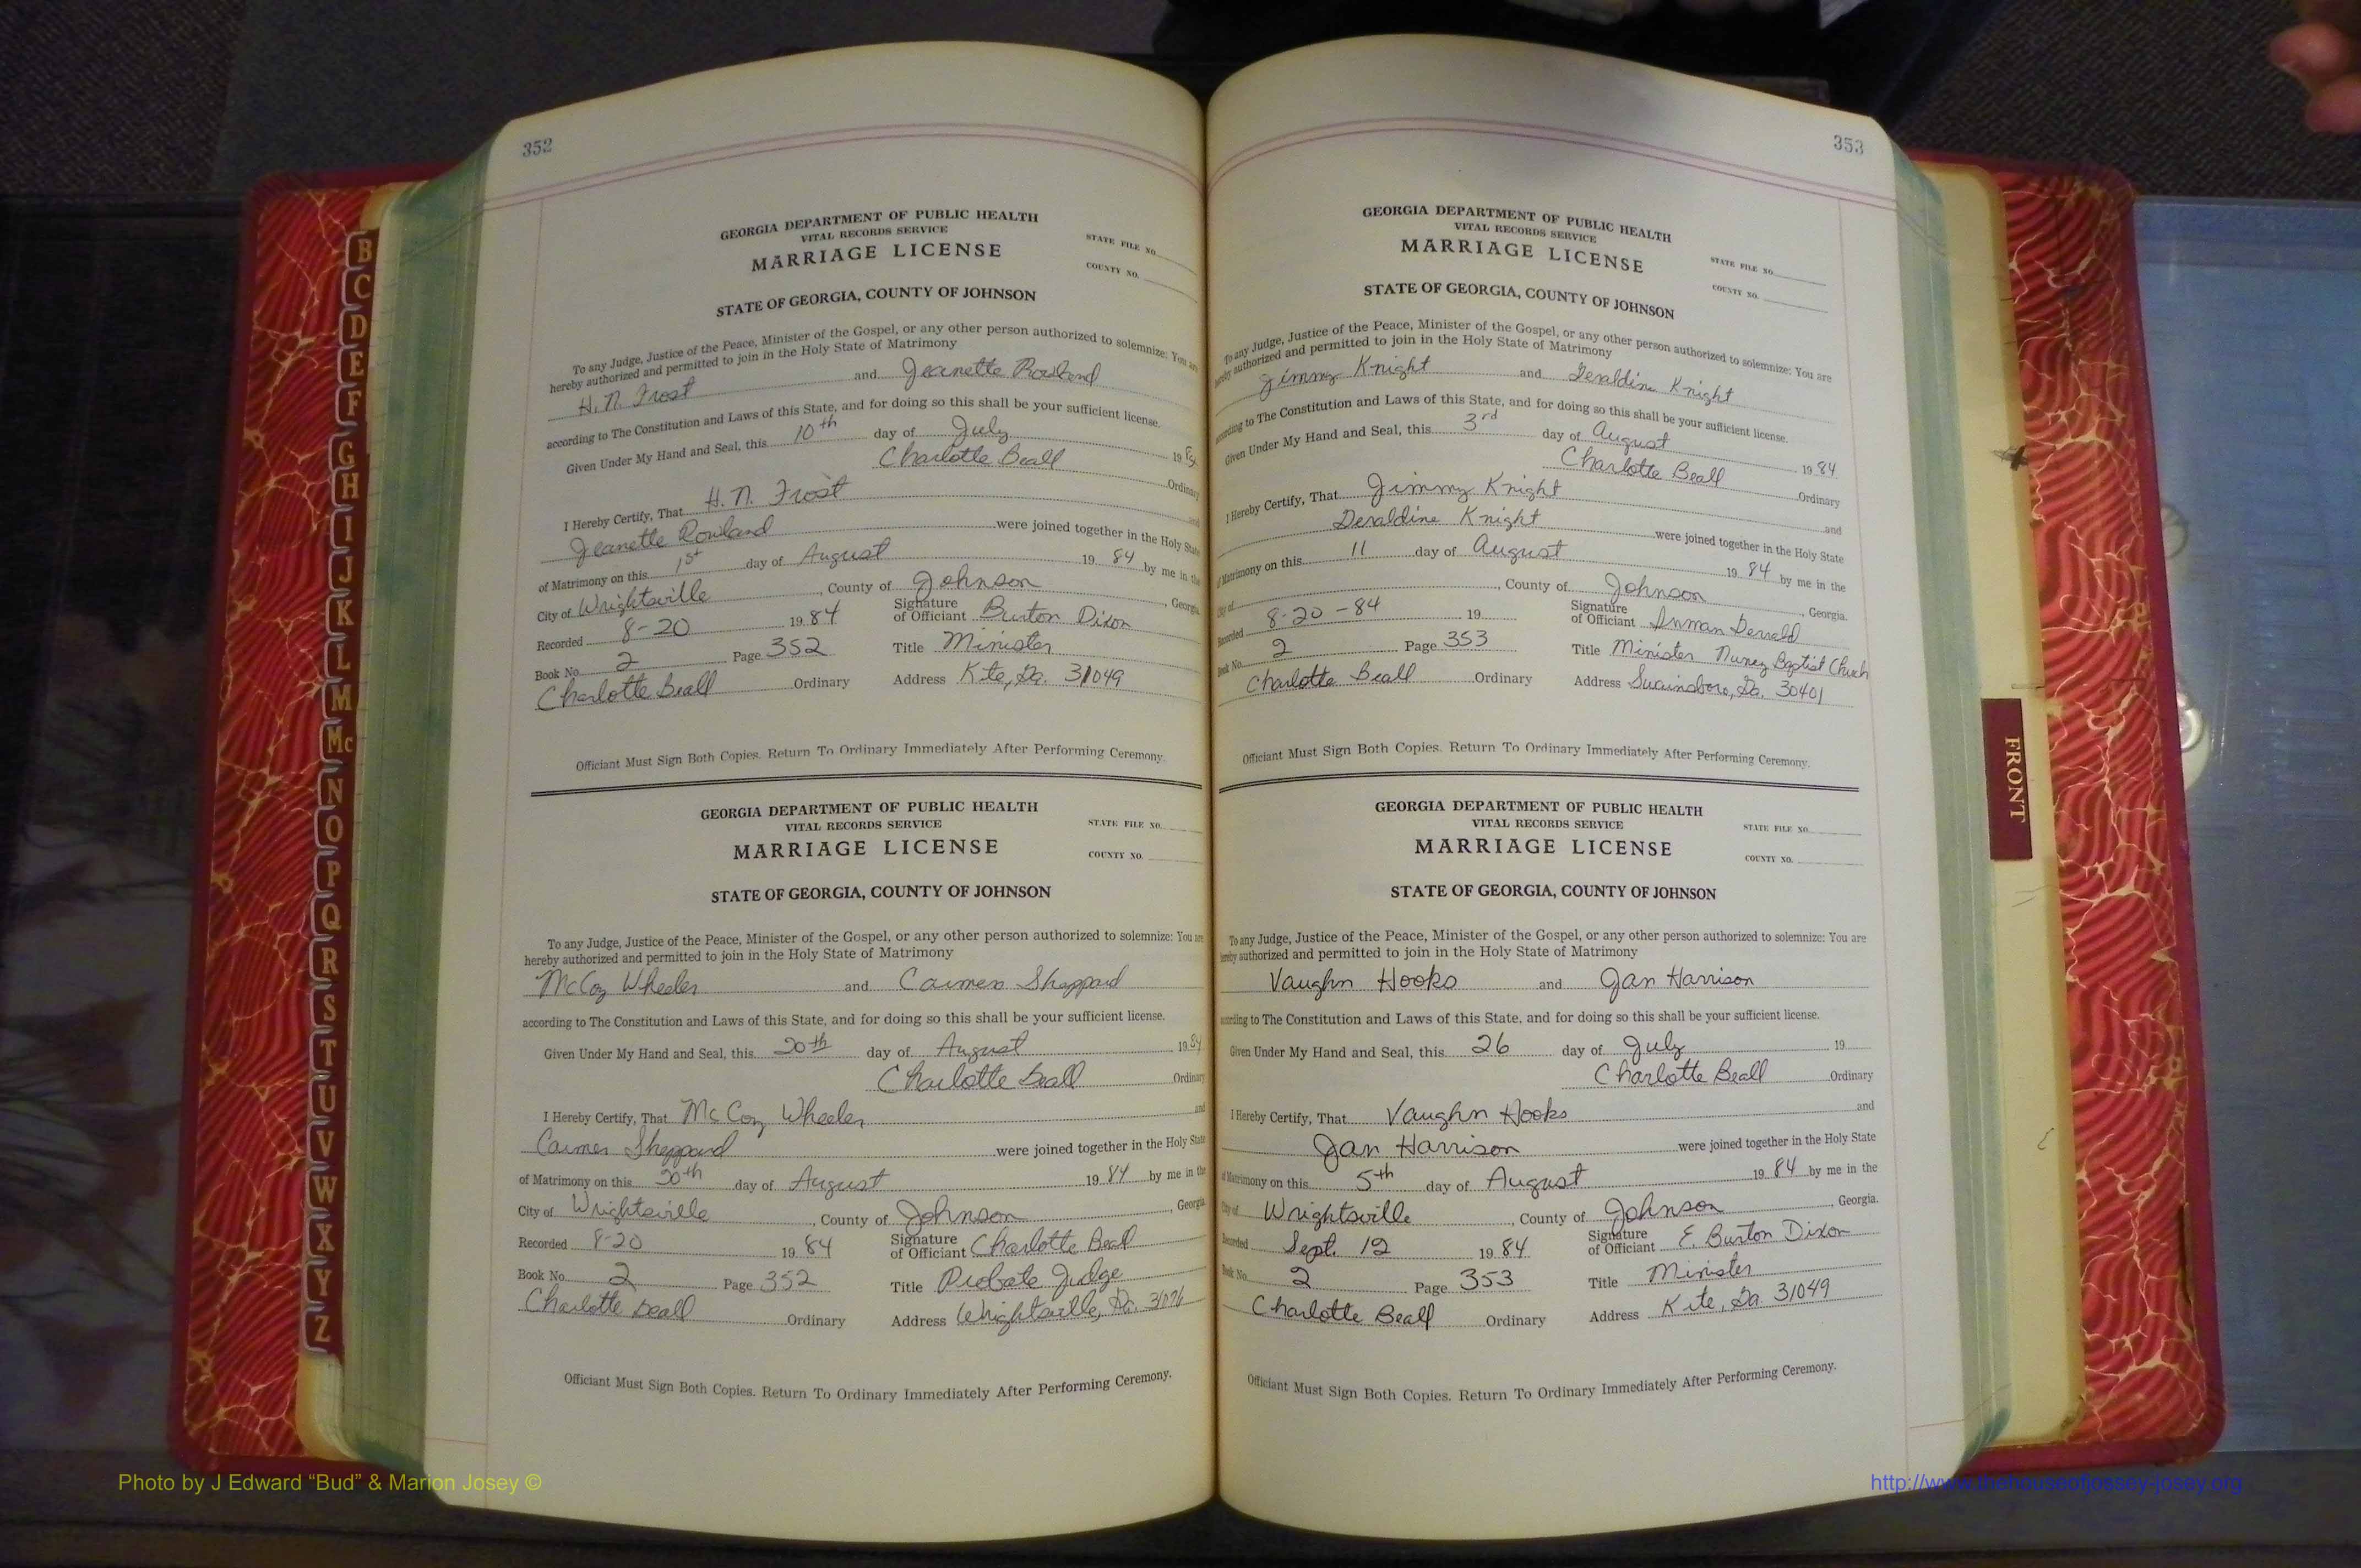 352
GEORGIA DEPARTMENT OF PUBLIC HEALTH
VITAL RECORDS SERVICE
MARRIAGE LICENSE
STATE FILE NO.
COUNTY NO.
STATE OF GEORGIA, COUNTY OF JOHNSON
To any Judge, Justice of the Peace, Minister of the Gospel, or any other person authorized to solemnize: You are
hereby authorized and permitted to join in the Holy State of Matrimony
H. N. Frost and Jeanette Rowland
according to The Constitution and Laws of this State, and for doing so this shall be your sufficient license.
Given Under My Hand and Seal, this 10th day of July 19
Charlotte Beall Ordinary
I Hereby Certify, That H. N. Frost and
Jeanette Rowland were joined together in the Holy State
of Matrimony on this 1st day of August 19 84 by me in the
City of Wrightsville, County of Johnson, Georgia
Recorded 8-20 19 84 Signature of Officiant Burton Dixon
Book No. 2 Page 352 Title Minister
Charlotte Beall Ordinary Address Kite, Ga. 31049
Officiant Must Sign Both Copies. Return To Ordinary Immediately After Performing Ceremony.
GEORGIA DEPARTMENT OF PUBLIC HEALTH
VITAL RECORDS SERVICE
MARRIAGE LICENSE
STATE FILE NO.
COUNTY NO.
STATE OF GEORGIA, COUNTY OF JOHNSON
To any Judge, Justice of the Peace, Minister of the Gospel, or any other person authorized to solemnize: You are
hereby authorized and permitted to join in the Holy State of Matrimony
McCoy Wheeler and Carmen Sheppard
according to The Constitution and Laws of this State, and for doing so this shall be your sufficient license.
Given Under My Hand and Seal, this 20th day of August 19 84
Charlotte Beall Ordinary
I Hereby Certify, That McCoy Wheeler and
Carmen Sheppard were joined together in the Holy State
of Matrimony on this 20th day of August 19 84 by me in the
City of Wrightsville, County of Johnson, Georgia
Recorded 8-20 19 84 Signature of Officiant Charlotte Beall
Book No. 2 Page 352 Title Probate Judge
Charlotte Beall Ordinary Address Wrightsville, Ga. 31096
Officiant Must Sign Both Copies. Return To Ordinary Immediately After Performing Ceremony.
353
GEORGIA DEPARTMENT OF PUBLIC HEALTH
VITAL RECORDS SERVICE
MARRIAGE LICENSE
STATE FILE NO.
COUNTY NO.
STATE OF GEORGIA, COUNTY OF JOHNSON
To any Judge, Justice of the Peace, Minister of the Gospel, or any other person authorized to solemnize: You are
hereby authorized and permitted to join in the Holy State of Matrimony
Jimmy Knight and Geraldine Knight
according to The Constitution and Laws of this State, and for doing so this shall be your sufficient license.
Given Under My Hand and Seal, this 3rd day of August 19 84
Charlotte Beall Ordinary
I Hereby Certify, That Jimmy Knight and
Geraldine Knight were joined together in the Holy State
of Matrimony on this 11 day of August 19 84 by me in the
City of , County of Johnson, Georgia.
Recorded 8-20-84 19 Signature of Officiant Inman
Book No. 2 Page 353 Title Minister Nunez Baptist Church
Charlotte Beall Ordinary Address Swainsboro, Ga. 30401
Officiant Must Sign Both Copies. Return To Ordinary Immediately After Performing Ceremony.
GEORGIA DEPARTMENT OF PUBLIC HEALTH
VITAL RECORDS SERVICE
MARRIAGE LICENSE
STATE FILE NO.
COUNTY NO.
STATE OF GEORGIA, COUNTY OF JOHNSON
To any Judge, Justice of the Peace, Minister of the Gospel, or any other person authorized to solemnize: You are
hereby authorized and permitted to join in the Holy State of Matrimony
Vaughn Hooks and Jan Harrison
according to The Constitution and Laws of this State, and for doing so this shall be your sufficient license.
Given Under My Hand and Seal, this 26 day of July 19
Charlotte Beall Ordinary
I Hereby Certify, That Vaughn Hooks and
Jan Harrison were joined together in the Holy State
of Matrimony on this 5th day of August 19 84 by me in the
City of Wrightsville, County of Johnson, Georgia.
Recorded Sept. 12 19 84 Signature of Officiant E. Burton Dixon
Book No. 2 Page 353 Title Minister
Charlotte Beall Ordinary Address Kite, Ga 31049
Officiant Must Sign Both Copies. Return To Ordinary Immediately After Performing Ceremony.
B
C
D
E
F
G
H
I
J
K
L
M
Mc
N
O
P
Q
R
S
T
U
V
W
X
Y
Z
FRONT
Photo by J Edward “Bud” & Marion Josey ©
http://www.thehouseofjossey-josey.org